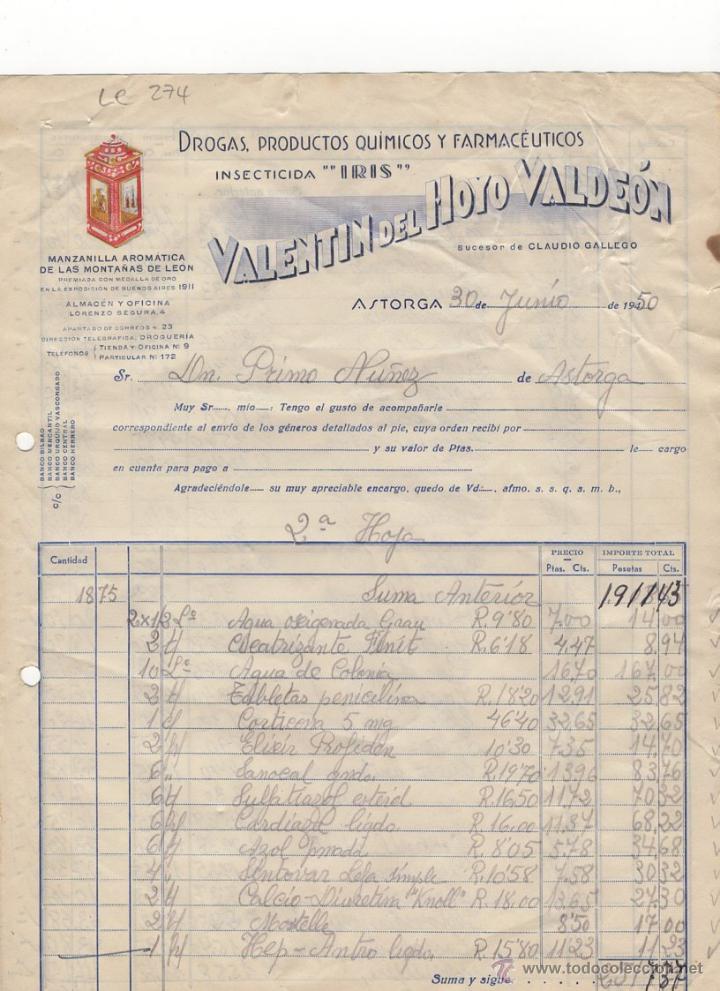 LC 274
DROGAS, PRODUCTOS QUÍMICOS Y FARMACÉUTICOS
INSECTICIDA ""IRIS""
VALENTIN DEL HOYO VALDEÓN
Sucesor de CLAUDIO GALLEGO
MANZANILLA AROMÁTICA
DE LAS MONTAÑAS DE LEÓN
PREMIADA CON MEDALLA DE ORO
EN LA EXPOSICIÓN DE BUENOS AIRES 1911
ALMACÉN Y OFICINA
LORENZO SEGURA, 4
APARTADO DE CORREOS N. 23
DIRECCIÓN TELEGRÁFICA: DROGUERÍA
TELÉFONOS { TIENDA Y OFICINA Nº 9
PARTICULAR Nº 172
ASTORGA 30 de Junio de 1950
Sr. Dn. Primo Nuñez de Astorga
Muy Sr. mío: Tengo el gusto de acompañarle
correspondiente al envío de los géneros detallados al pie, cuya orden recibí por
y su valor de Ptas. le cargo
en cuenta para pago a
Agradeciéndole su muy apreciable encargo, quedo de Vd., afmo. s. s. q. a. m. b.,
c/c
BANCO BILBAO
BANCO MERCANTIL
BANCO URQUIJO VASCONGADO
BANCO CENTRAL
BANCO HERRERO
2ª Hoja
Cantidad PRECIO IMPORTE TOTAL
Ptas. Cts. Pesetas Cts.
1875 Suma Anterior 1911 43
2x1/2 Lº Agua oxigenada Grau R.9'80 7,00 14,00
2 Cicatrizante Finit R.6'18 4,47 8,94
10 Agua de Colonia 16,70 167,00
2 Tabletas penicilina R.18'20 12,91 25,82
1 Corticona 5 mg 46'40 32,65 32,65
2 Elixir 10'30 7,35 14,70
6 " Sanocal R.19'70 13,96 83,76
6 Sulfatiazol R.16,50 11,72 70,32
6 Cardiazol liqdo. R.16,00 11,37 68,22
6 Azol R.8'05 5,78 34,68
4 " simple R.10'58 7,58 30,32
2 Calcio-Diuretina "Knoll" R.18,00 13,65 27,30
2 8,50 17,00
1 Hep-Antro liqdo. R.15'80 11,23 11,23
Suma y sigue
www.todocoleccion.net